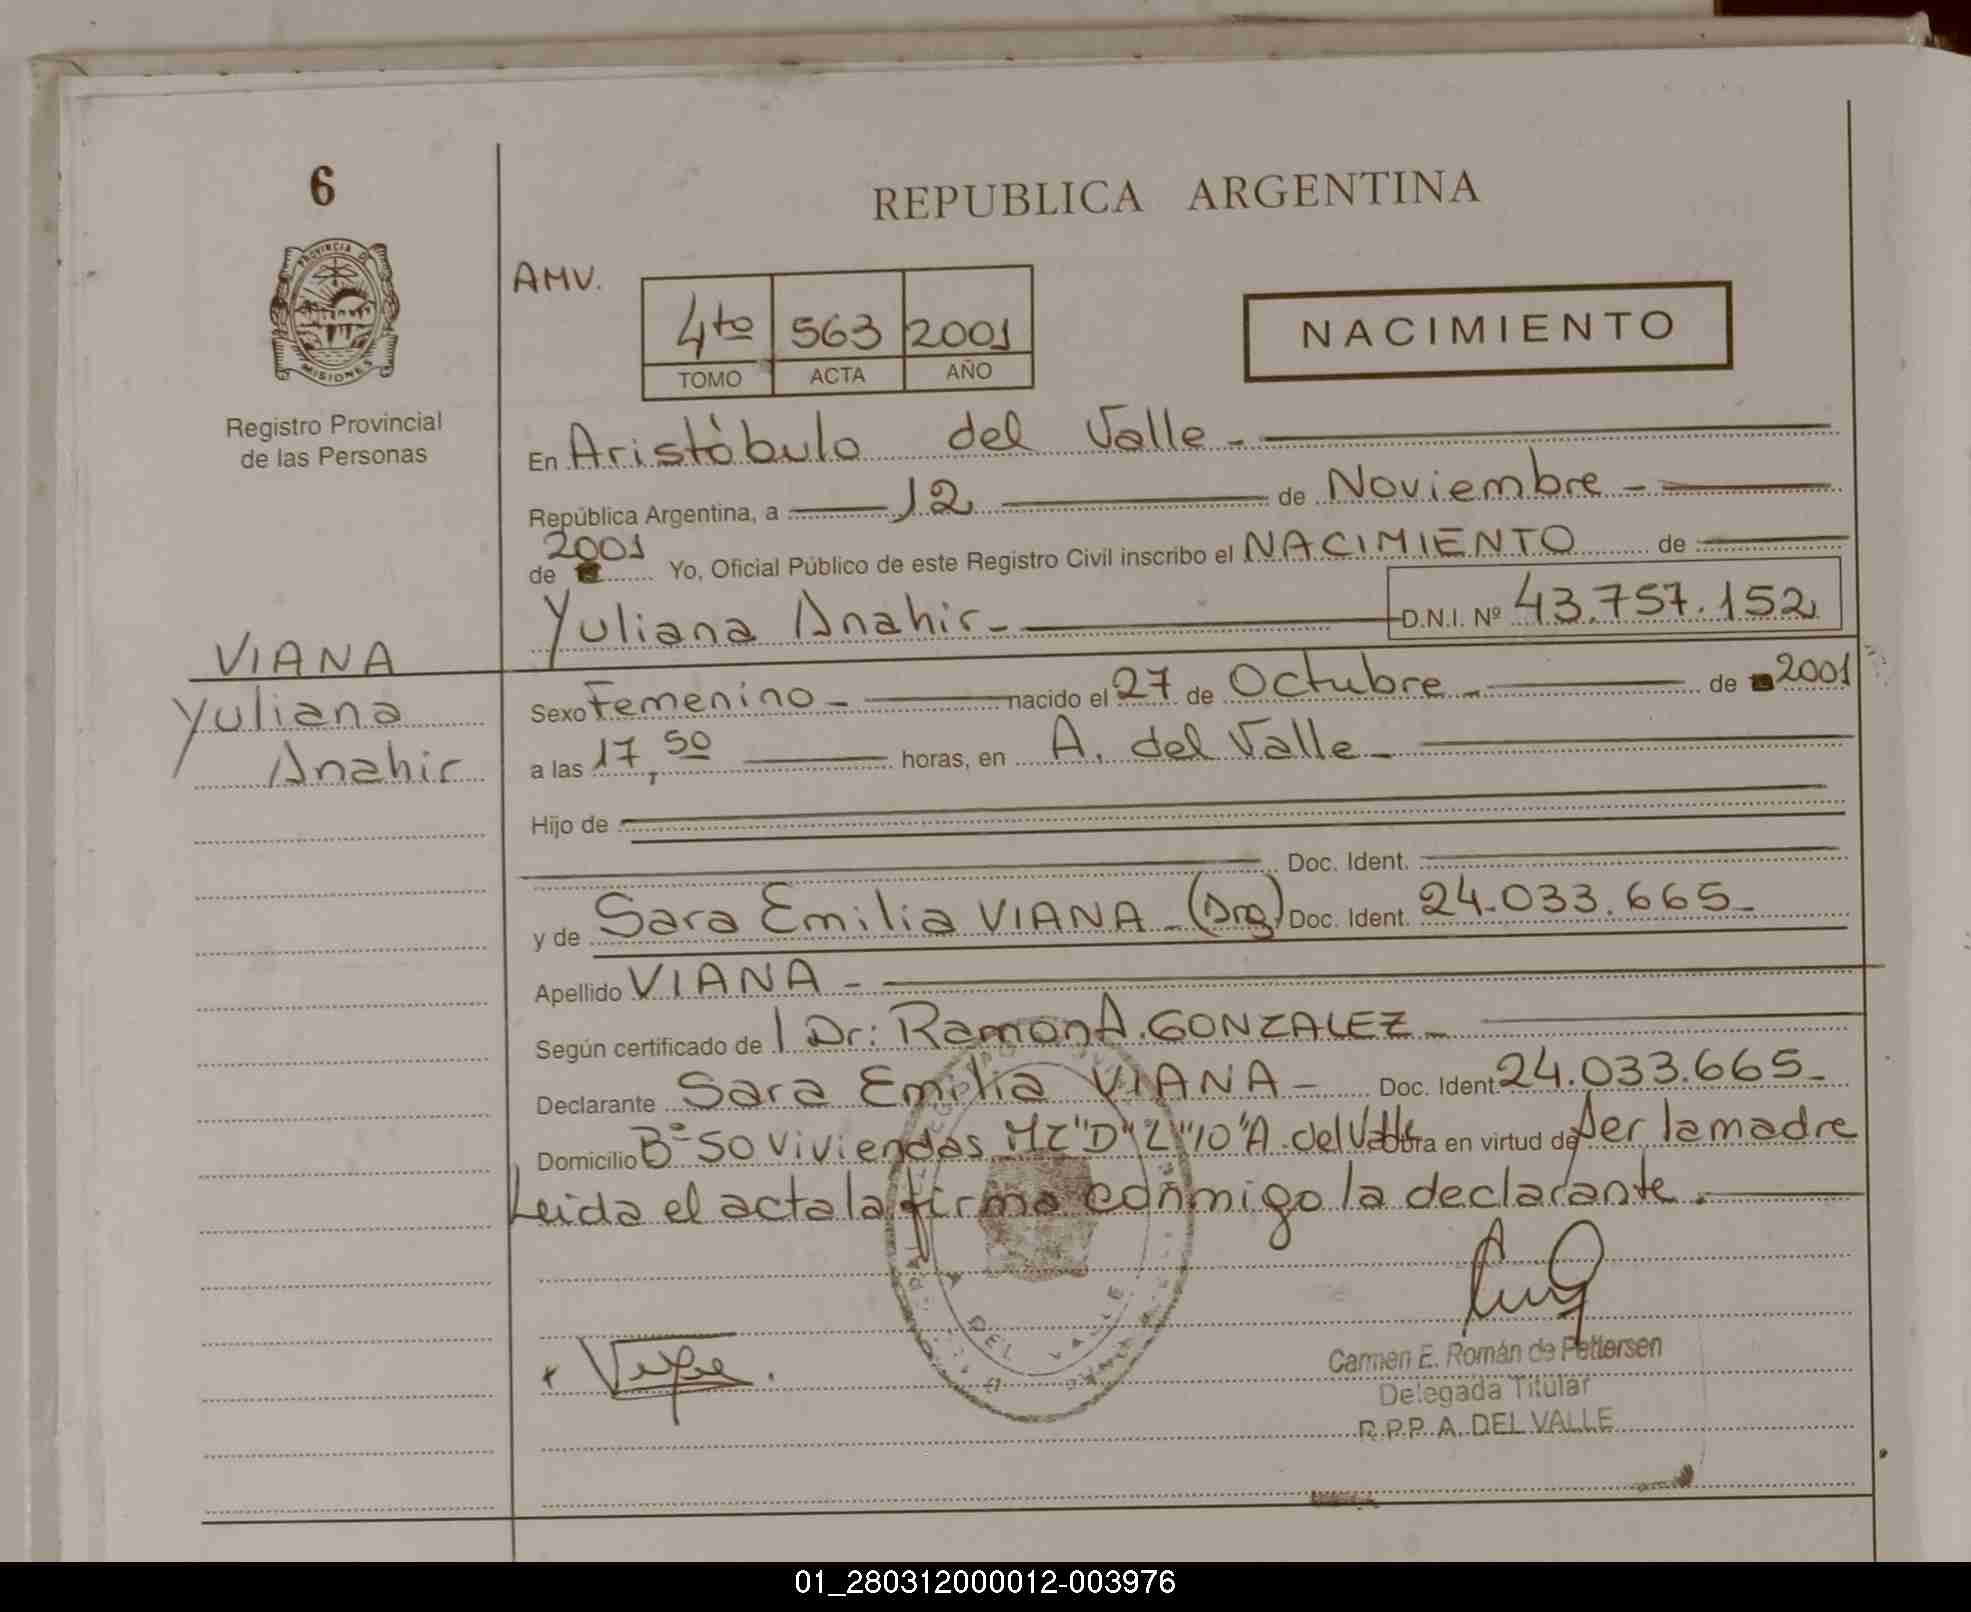 6
REPUBLICA ARGENTINA
PROVINCIA DE
MISIONES
AMV.
4to 563 2001
TOMO ACTA AÑO
NACIMIENTO
Registro Provincial
de las Personas
En Aristóbulo del Valle -
República Argentina, a 12 de Noviembre -
2001
de Yo, Oficial Público de este Registro Civil inscribo el NACIMIENTO de
Yuliana Anahir - D.N.I. Nº 43.757.152
VIANA
Yuliana
Anahir
Sexo Femenino - nacido el 27 de Octubre - de 2001
a las 17,50 horas, en A. del Valle -
Hijo de
Doc. Ident.
y de Sara Emilia VIANA - (Arg) Doc. Ident. 24.033.665 -
Apellido VIANA -
Según certificado de Dr: Ramon A. GONZALEZ -
Declarante Sara Emilia VIANA - Doc. Ident. 24.033.665 -
Domicilio Bº 50 Viviendas Mz "D" L "10" A. del Valle Obra en virtud de Ser la madre
Leida el acta la firma conmigo la declarante.
A. DEL VALLE
Carmen E. Román de Pettersen
Delegada Titular
R.P.P. A. DEL VALLE
01_280312000012-003976